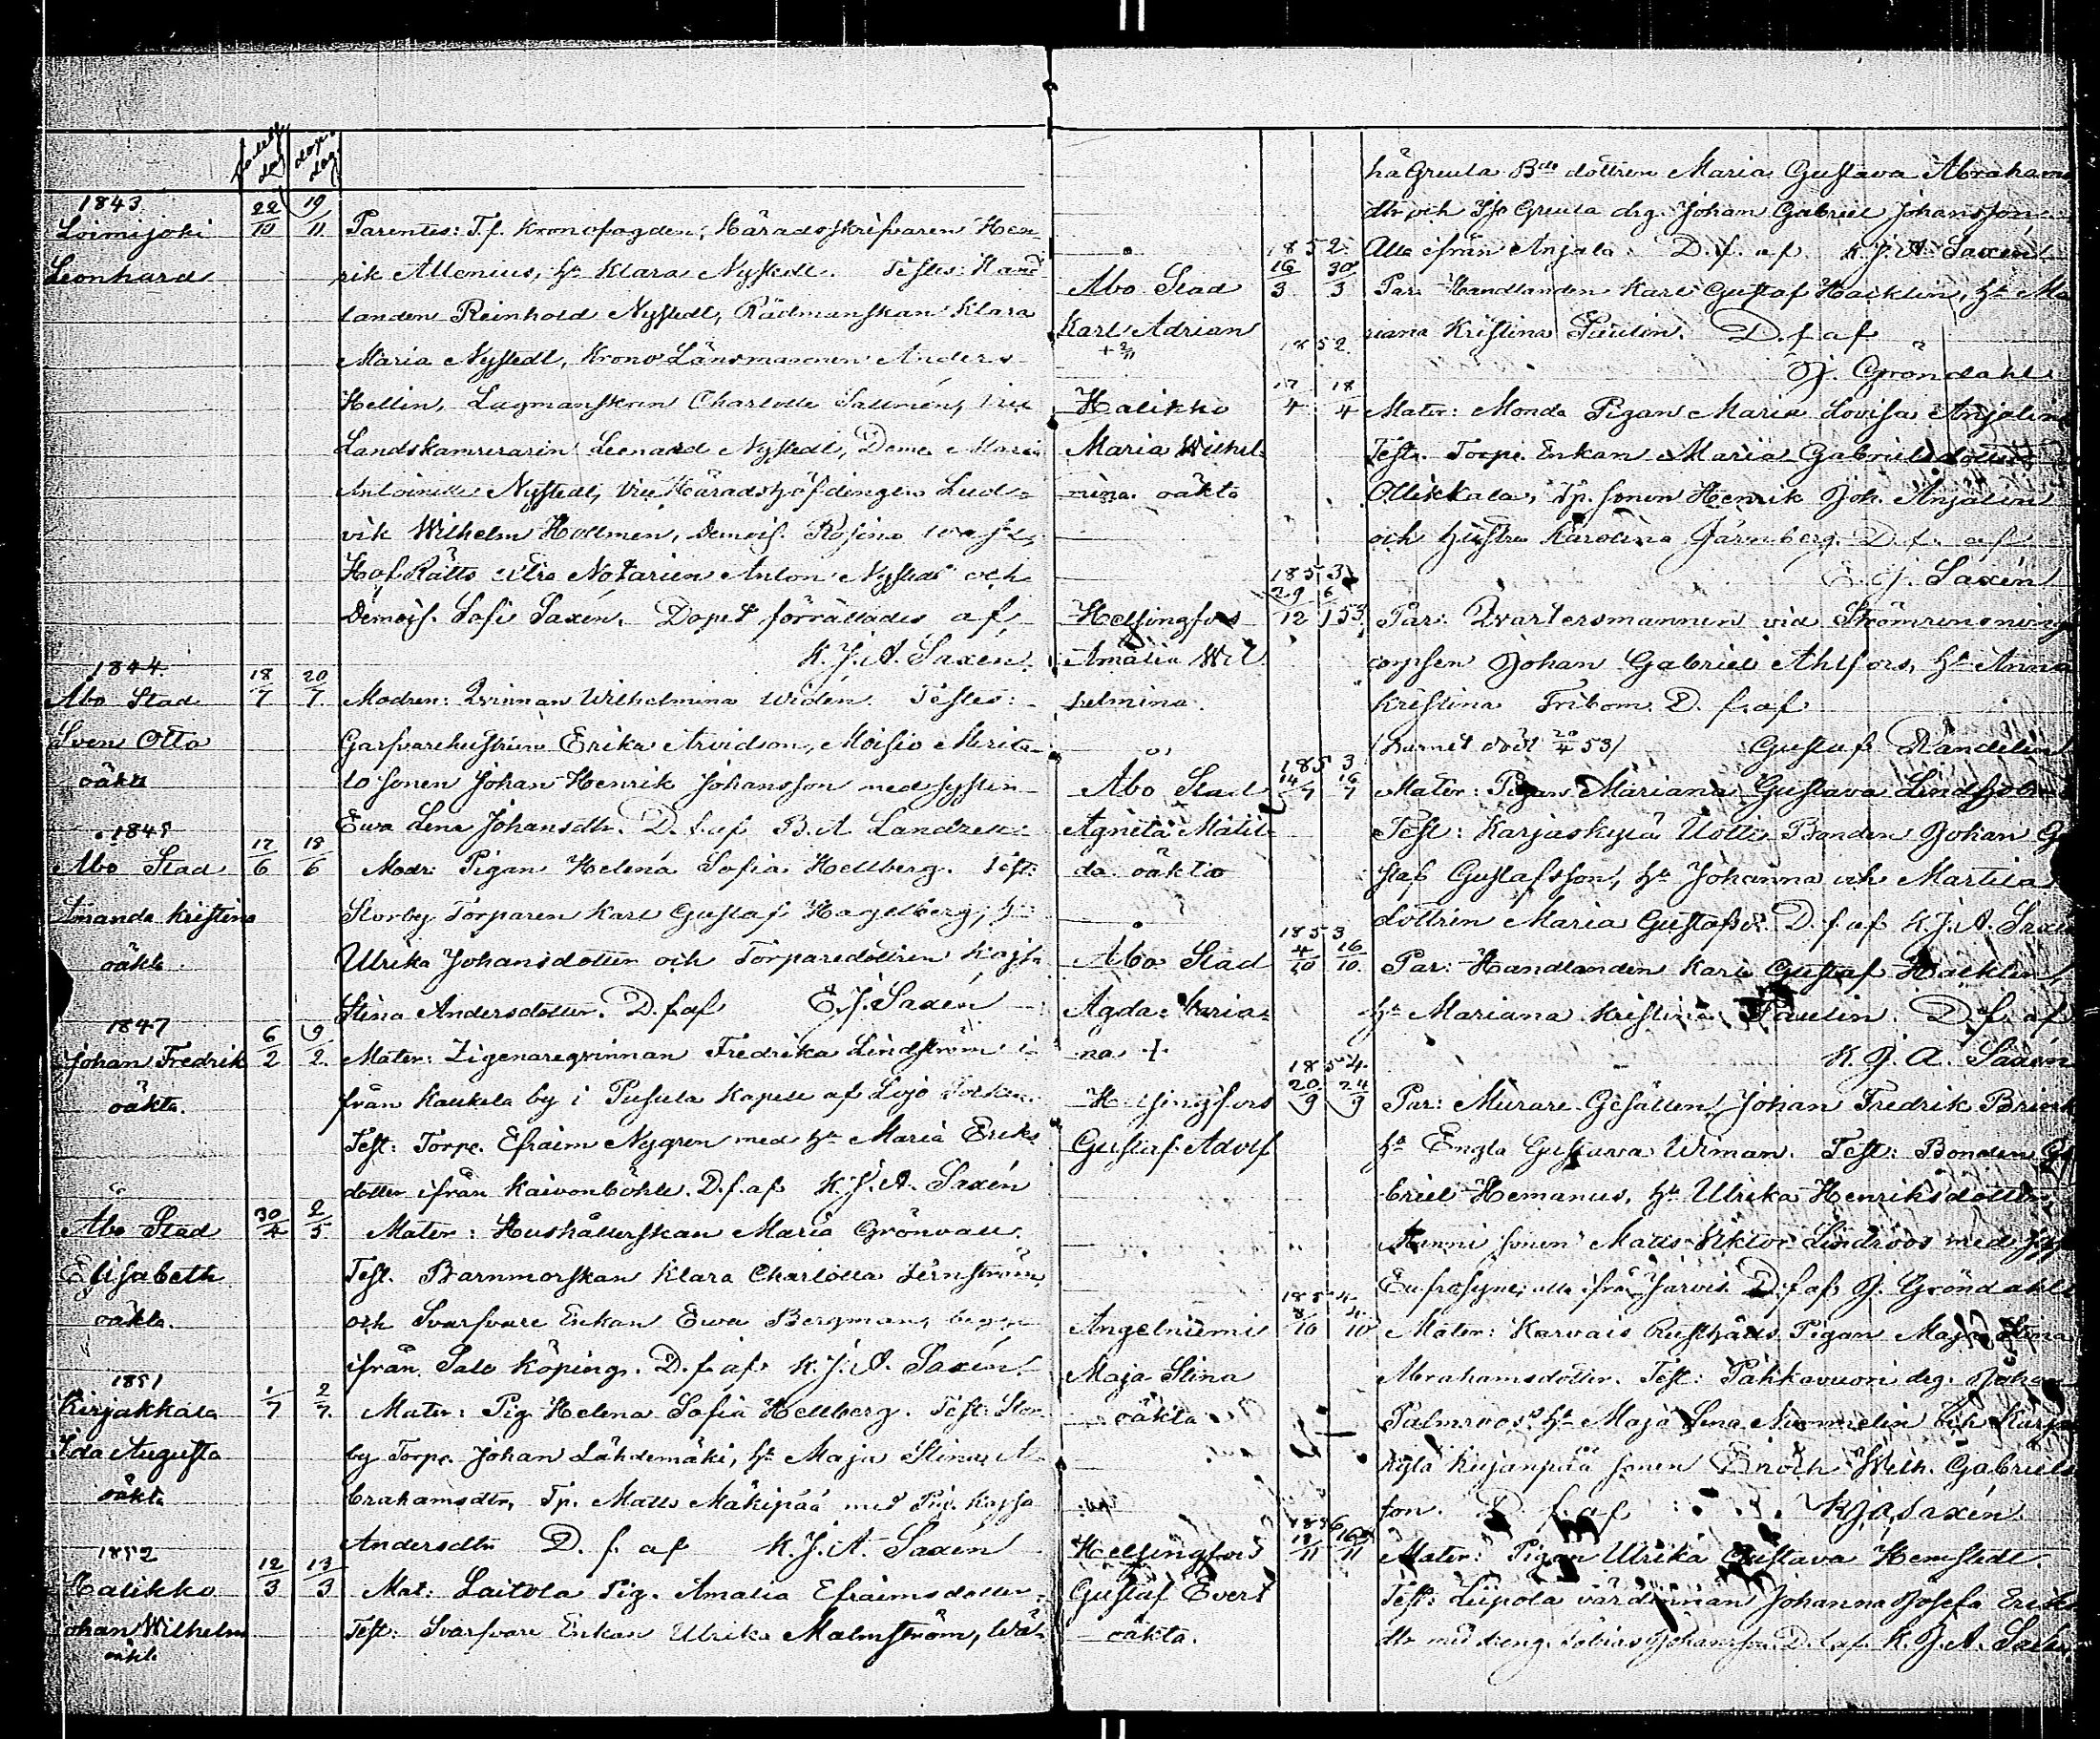 födelse dag
döpe. dag.
1843
Loimijoki 22/10 19/11 Parentes: T.f. Kronofogden, Häradsskrifvaren Hen-
Leonhard rik Allenius, hu Klara Nystedt. Testes: Hand
landen Reinhold Nystedt, Rådmanskan Klara
Maria Nystedt, Krono Länsmannen Anders
Hellin, Lagmanskan Charlotte Sallmén, vice
Landskamreraren Leonard Nystedt, Deme. Maria
Antoinette Nystedt, vice Häradshöfdingen Lud-
vik Wilhelm Hollmen, Demois. Rosina
Hof Rätts extra Notarien Anton Nystedt och
Demois. Sofi Saxén. Dopet förrättades af
K. J. A. Saxén.
1844.
Åbo Stad 18/7 20/7 Modren: Qvinnan Wilhelmina Widén. Testes:
Sven Otto Garfvarehustrun Erika Arvidson, Moisio Merita-
oäkta lo sonen Johan Henrik Johansson med systen
Ewa Lena Johansdtr. D. f. af B. A. Landzett
1845
Åbo Stad 17/6 18/6 Modr: Pigan Helena Sofia Hellberg. Test:
Amanda Kristina Storby Torparen Karl Gustaf Hagelberg, h:
oäkta Ulrika Johansdotter och Torparedottren Kajsa
Stina Andersdotter. D. f. af E. J. Saxén
1847
Johan Fredrik 6/2 9/2 Mater: Zigenareqvinnan Fredrika Lindström i-
oäkta. från Kaukela by i Pusula Kapell af Lojo Socken.
Test: Torpe. Efraim Nygren med hu Maria Eriks
dotter ifrån Kaivonböhle. D. f. af K. J. A. Saxén
Åbo Stad 30/4 2/5 Mater: Hushållerskan Maria Grönvall.
Elisabeth Test. Barnmorskan Klara Charlotta Ternström
oäkta. och Svarfvare Enkan Ewa Bergman,
ifrån Salo köping. D. f. af K. J. A. Saxén.
1851
Kirjakkala 1/7 2/7 Mater: Pig. Helena Sofia Hellberg. Test: Stor-
Ida Augusta by Torpe. Johan Lähdemäki, hu Maja Stina A-
oäkta brahamsdtr, Tp. Matts Mäkipää med Pig. Kajsa
Andersdtr D. f. af K. J. A. Saxén
1852
Halikko 12/3 13/3 Mat: Laitola Pig. Amalia Efraimsdotter.
Johan Wilhelm Test: Svarfvare Enkan Ulrika Malmström, Wä-
oäkta
hä Greula Bde dottren Maria Gustava Abrahams
dtr och Greula drg. Johan Gabriel Johansson
Alla ifrån Anjala. D. f. af K. J. A. Saxén
1852
Åbo Stad 16/3 30/3 Par: Handlanden Karl Gustaf Hacklin, hu Ma
Karl Adrian riana Kristina Paulin. D. f. af
J. Gröndahl
1852
Halikko 17/4 18/4 Mater: Monda Pigan Maria Lovisa Anjalin
Maria Wilhel- Test. Torpe. Enkan Maria Gabrielsdotter
mina oäkta Ollikkala, Tp. sonen Henrik Joh. Anjalin
och hustru Karolina Järnberg. D. f. af
E. J. Saxén
1853
Helsingfors 29/12 6/1 53. Par: Qvartersmannen vid Strömrensnings
Amalia Wil corpsen Johan Gabriel Ahlfors, hu Anna
helmina. Kristina Tribom. D. f. af
(Barnet död 20/4 53) Gustaf Randelin
1853
Åbo Stad 14/7 16/7 Mater: Pigan Mariana Gustava Lindholm
Agneta Matil- Test: Karjaskylä Uotti Bonden Johan G
da oäkta staf Gustafsson, hu Johanna och Martila
dottren Maria Gustafsd. D. f. af K. J. A. Saxén
1853
Åbo Stad 4/10 16/10. Par: Handlanden Karl Gustaf Hacklin
Agda Maria- hu Mariana Kristina Paulin. D. f. af
na † K. J. A. Saxén
1854.
Helsingfors 20/9 24/9 Par: Murare Gesällen Johan Fredrik Brink
Gustaf Adolf hu Engla Gustava Wiman. Test: Bonden Ga
briel Hemanus, hu Ulrika Henriksdotter
Manni sonen Matts Viktor Lindroos med
Eufrosyne, alla ifrån Järvis. D. f. af J. Gröndahl
1854
Angelniemi 10 10 Mater: Karvais Rusthålls Pigan Maja Stina
Maja Stina Abrahamsdotter. Test: Pahkavuori drg. Johan
oäkta Palmroos, hu Maja Lena Nummelin och Karja
kylä Kujanpää sonen Enoch Wilh. Gabriels
son. D. f. af K. J. A. Saxén.
1856
Helsingfors 12/11 16/11 Mater: Pigan Ulrika Gustava Hemstedt.
Gustaf Evert Test: Liipola värdinnan Johanna Josefa Eriks
oäkta. dtr med dreng. Tobias Johansson. D. f. af K. J. A. Saxén